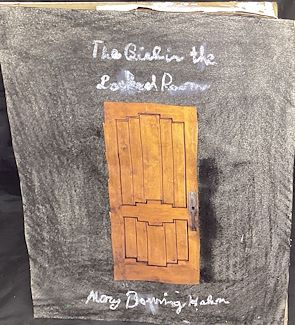 The Girl in the
Locked Room
Mary Downing Hahn